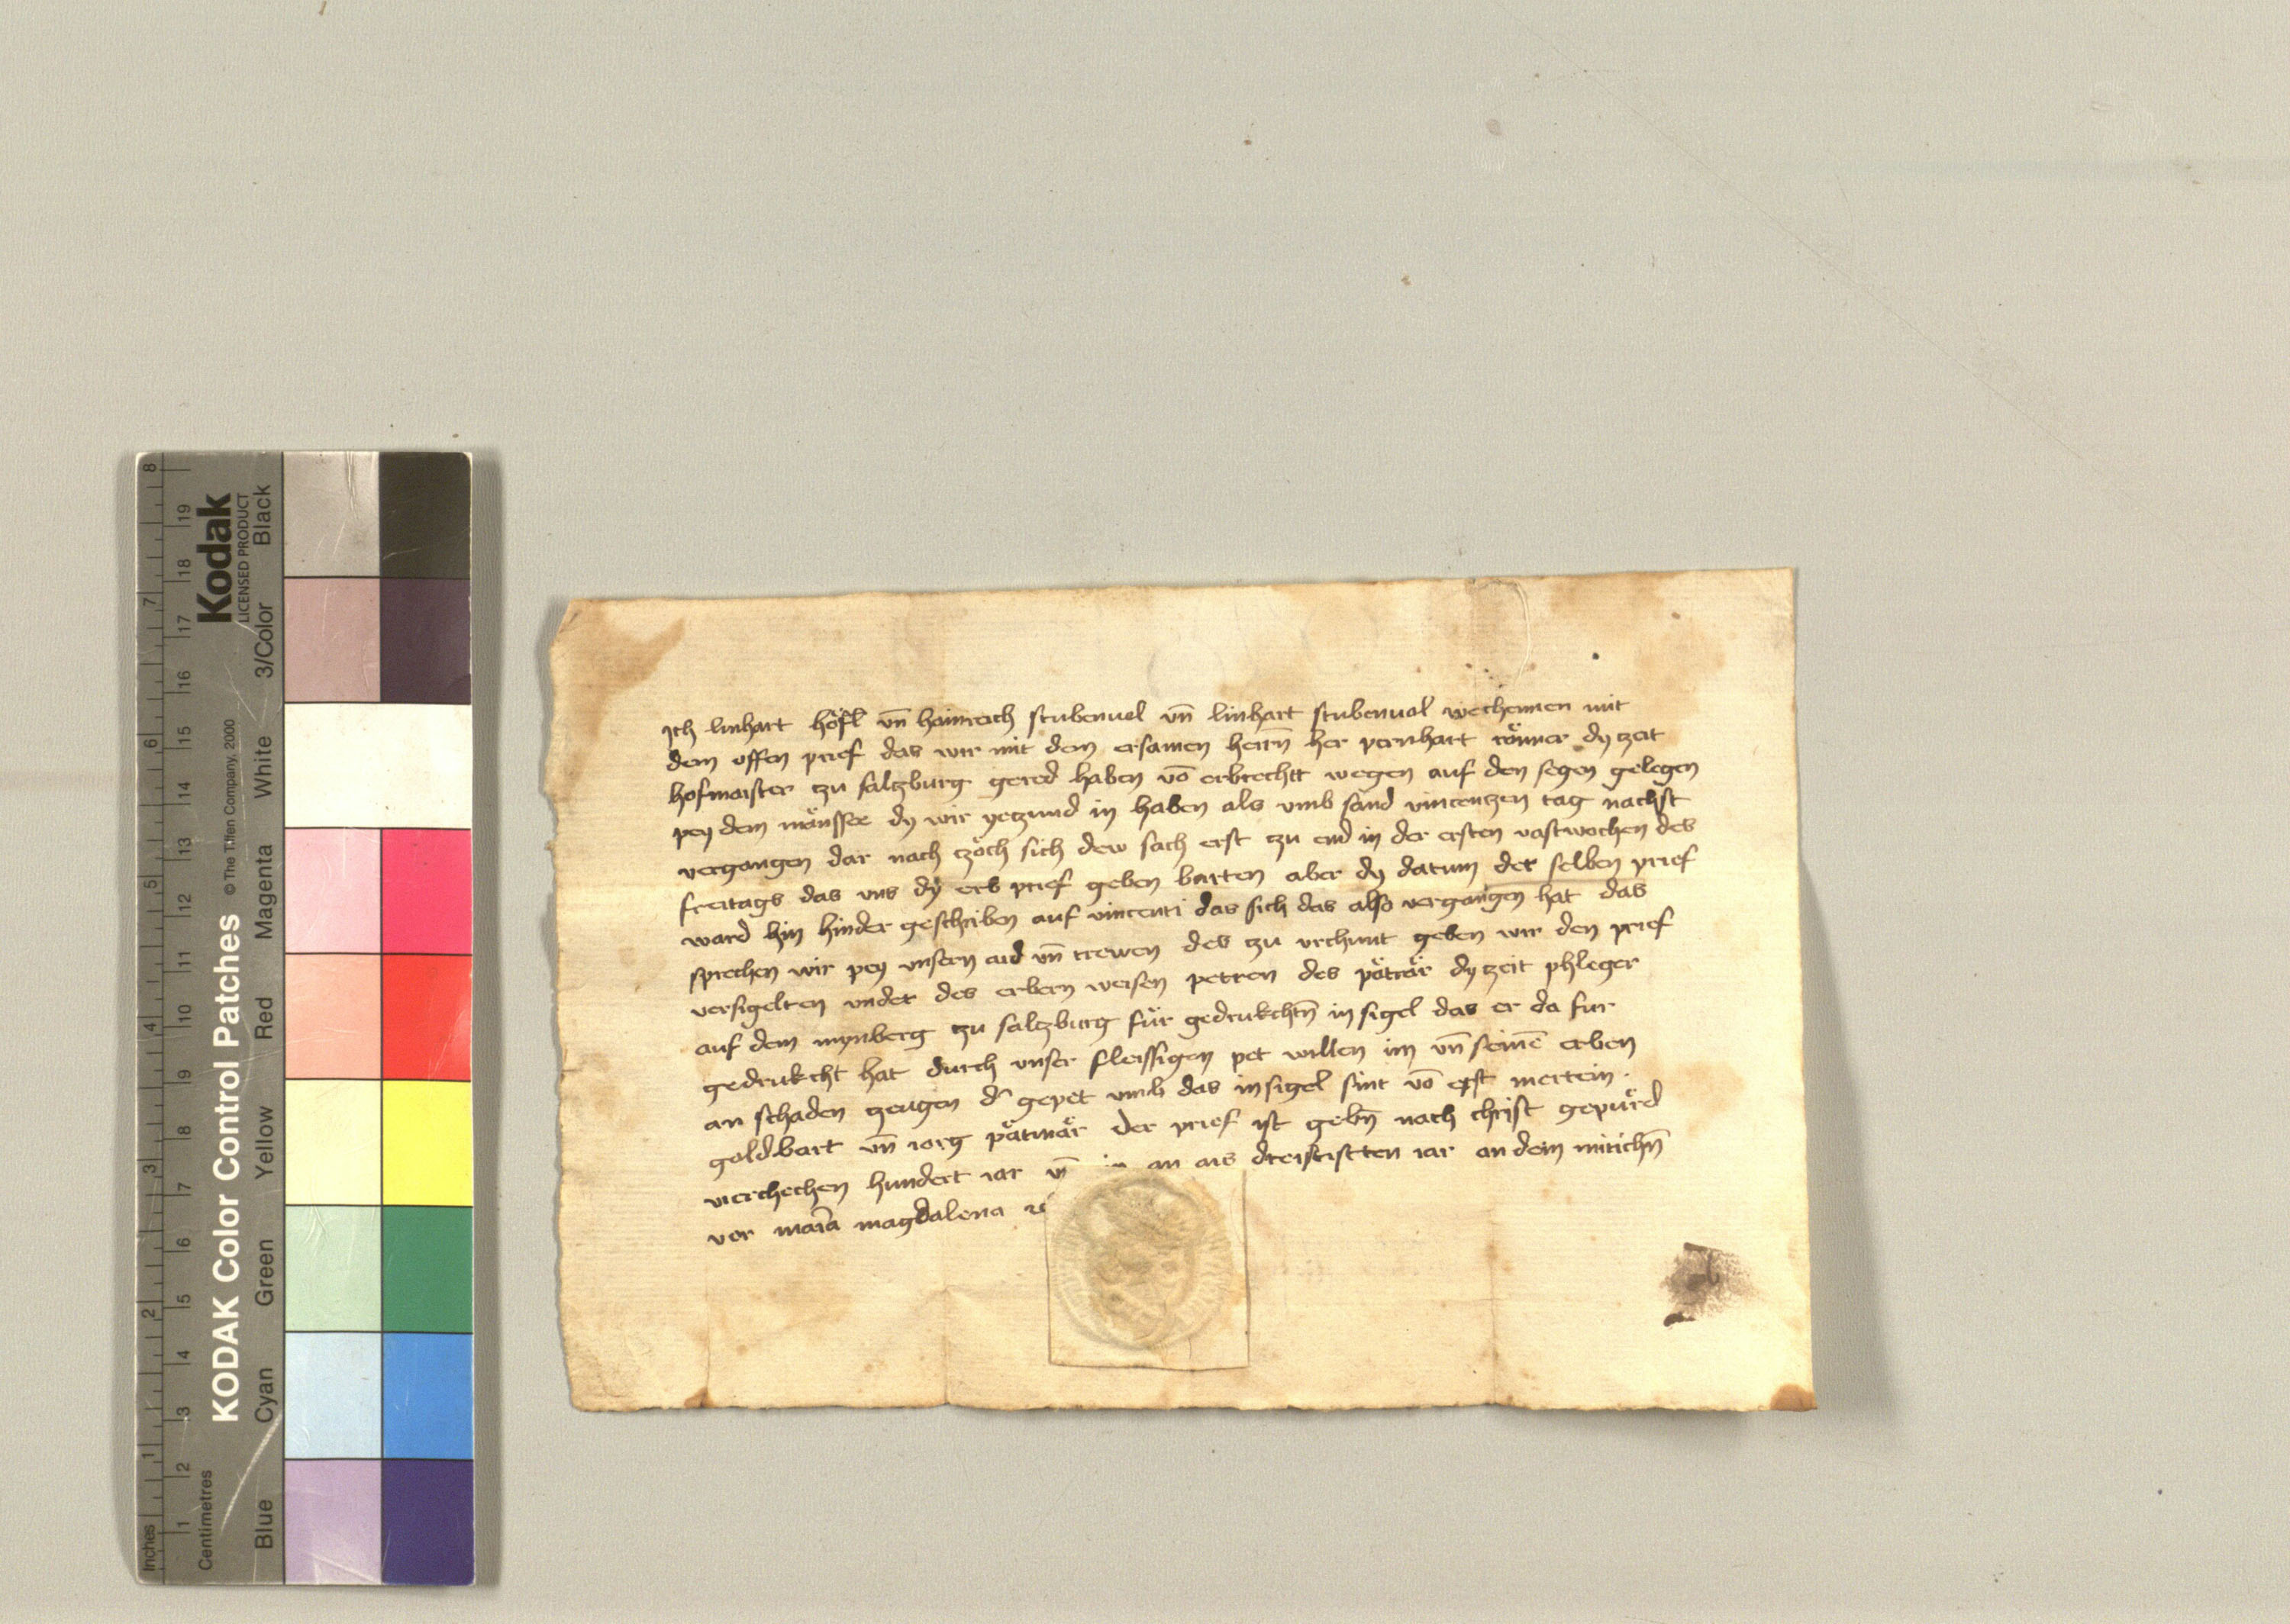 Ich linhart höfl vn̄ hainreich stubenuol vn̄ linhart stubenuol wechennen mit
dem offen prief das wir mit dem ersamen herrn̄ her pernhart rönner dy zeit
hofmaister tzu saltzburg gered haben vō erbrechtt wegen auf den segen gelegen
pey dem männsse dy wir yetzund in haben als vmb sand vincentzen tag nachst
vergangen dar nach tzöch sich dew sach erst tzu end in der ersten vastwochen des
freitags das vns dy erb prief geben warten aber dy datum der selben prief
ward hin hinder geschriben auf vincenti das sich das also vergangen hat das
sprechen wir pey vnsern aid vn̄ trewen des tzu vrchunt geben wir den prief
versigelten vnder des erbern weisen petren des päträr dy zeit phleger
auf dem mynberg tzu saltzburg für gedrukchtn̄ insigel das er da fur
gedrukcht hat durch vnser fleissigen pet willen im vn̄ seinē erben
an schaden tzeugen d' gepet vmb das insigel sint vō erst mertein
goldbart vn̄ iorg pätinär der prief ist gebn̄ nach christ gepürd
vierchechen hundert iar vn̄ in an ais dreisistten iar an dem mitichn̄
vor maīa magdalena
KODAK Color Control Patches © The Tiffen Company, 2000
Kodak
LICENSED PRODUCT
Blue Cyan Green Yellow Red Magenta White 3/Color Black
Inches 1 2 3 4 5 6 7 8
Centimetres 1 2 3 4 5 6 7 8 9 10 11 12 13 14 15 16 17 18 19